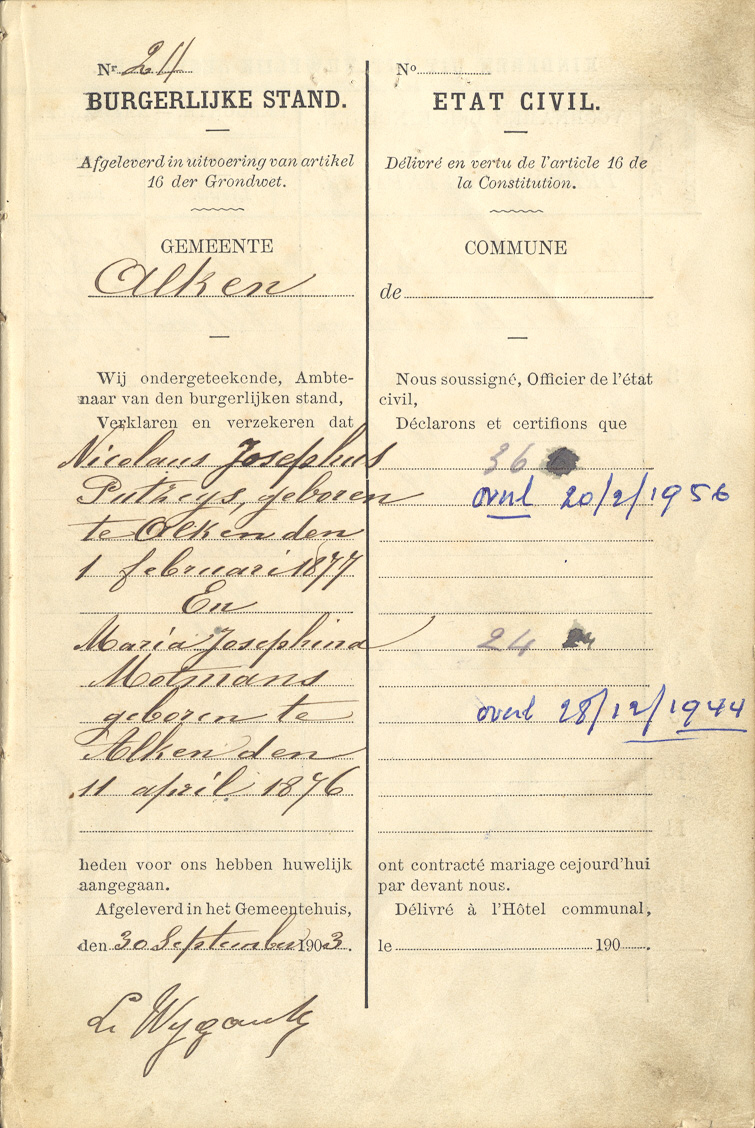 Nr 24
BURGERLIJKE STAND.
Afgeleverd in uitvoering van artikel
16 der Grondwet.
GEMEENTE
Alken
Wij ondergeteekende, Ambte-
naar van den burgerlijken stand,
Verklaren en verzekeren dat
Nicolaus Josephus
Putzeys, geboren
te Alken den
1 februari 1877
En
Maria Josephina
Motmans
geboren te
Alken den
11 april 1876
heden voor ons hebben huwelijk
aangegaan.
Afgeleverd in het Gemeentehuis,
den 30 September 1903.
No
ETAT CIVIL.
Délivré en vertu de l'article 16 de
la Constitution.
COMMUNE
de
Nous soussigné, Officier de l'état
civil,
Déclarons et certifions que
36
overl 20/2/1956
24
overl 28/12/1944
ont contracté mariage cejourd'hui
par devant nous.
Délivré à l'Hôtel communal,
le 190 .